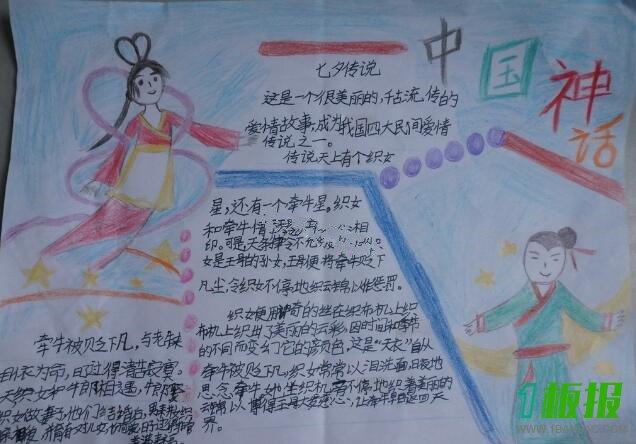 中国神话
七夕传说
这是一个很美丽的,千古流传的
爱情故事,成为我国四大民间爱情
传说之一。
传说天上有个织女
星,还有一个牵牛星。织女
和牵牛情
印。可是,天条律令不允
女是王母的孙女,王母便将牵牛贬下
凡尘,令织女不停地织云锦以作惩罚。
织女便用神奇的丝在织布机上织
布机上织出了美丽的云彩,因时间和季节
的不同而变幻它的颜色,这是“天衣”自从
牵牛被贬下凡,织女常常以泪洗面,日夜地
思念牵牛,她坐织机不停地织着美丽的
云锦以博得王母大发慈心,让牵牛早日返回天
界。
牵牛被贬下凡,与老牛
相依为命,日过得清苦寂寞。
天织女和牛郎相遇,牛郎
织女做妻子,他们
1板报